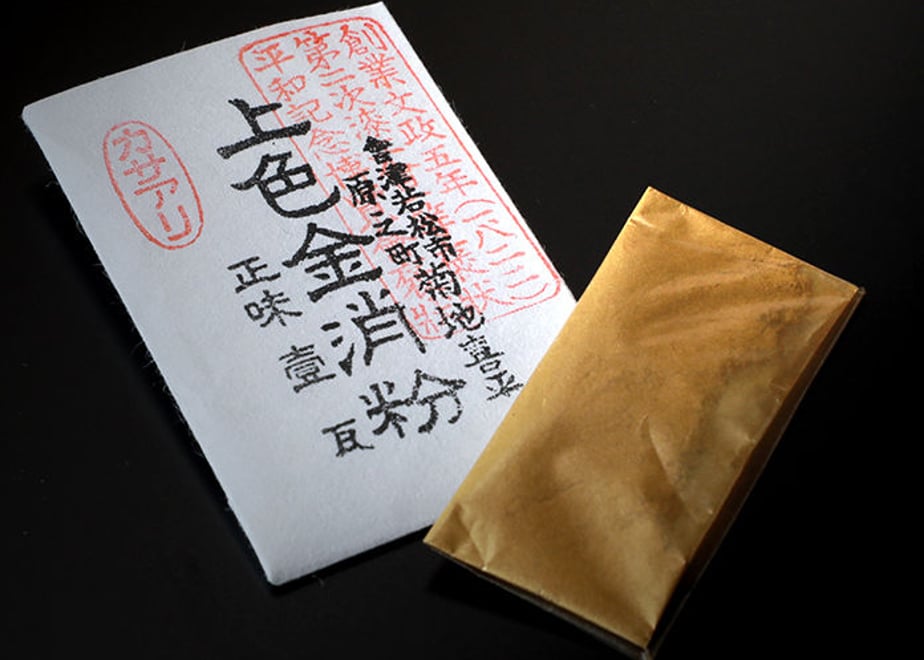 創業文政五年(一八二二)
第二次漆
平和記念博
會津若松市菊地喜平
原之町
上色金消粉
正味 壹瓦
カサアリ